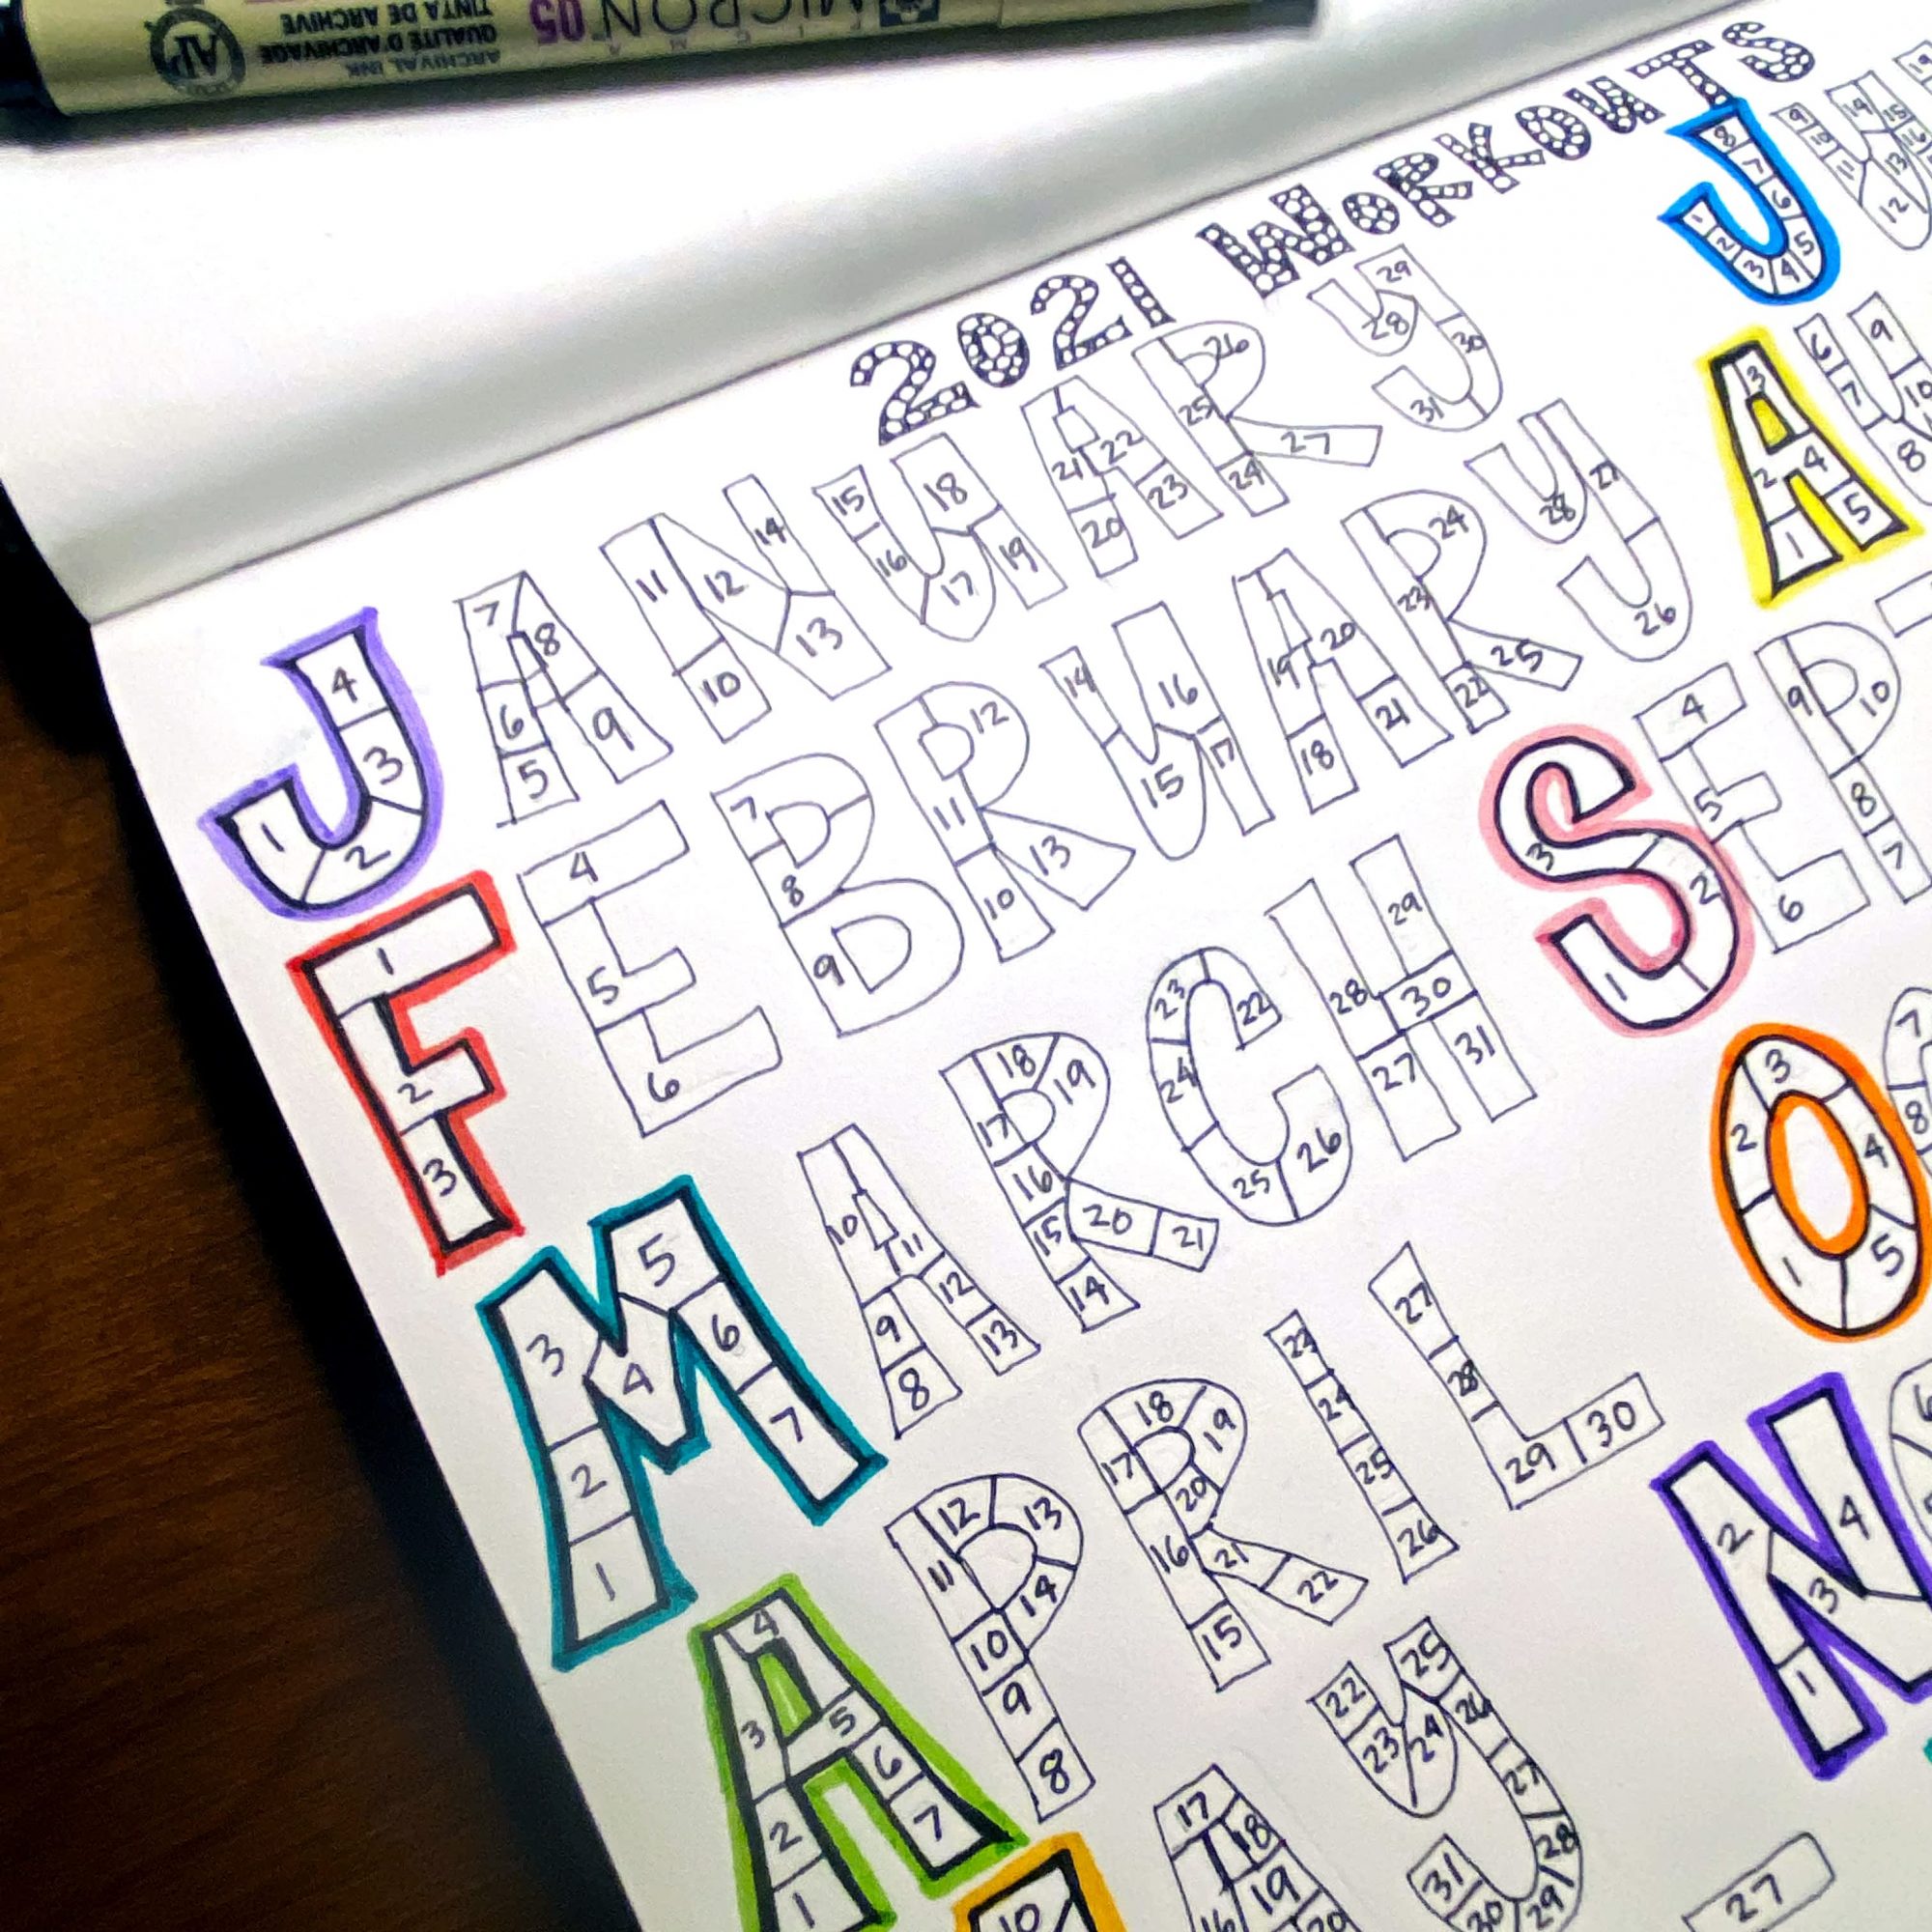 ARCHIVAL INK
QUALITE D'ARCHIVAGE
TINTA DE ARCHIVE
AP
MICRON 05
2021 WORKOUTS
JANUARY
1 2 3 4 5 6 7 8 9 10 11 12 13 14 15 16 17 18 19 20 21 22 23 24 25 26 27 28 29 30 31
FEBRUARY
1 2 3 4 5 6 7 8 9 10 11 12 13 14 15 16 17 18 19 20 21 22 23 24 25 26 27 28
MARCH
1 2 3 4 5 6 7 8 9 10 11 12 13 14 15 16 17 18 19 20 21 22 23 24 25 26 27 28 29 30 31
APRIL
1 2 3 4 5 6 7 8 9 10 11 12 13 14 15 16 17 18 19 20 21 22 23 24 25 26 27 28 29 30
AY
10 16 17 18 19 20 22 23 24 25 26 27 28 29 30 31
27
JU
1 2 3 4 5 6 7 8 9 10 11 12 13 14 15 16
AU
1 2 3 4 5 6 7 8 9 10
SEP
1 2 3 4 5 6 7 8 9 10
O
1 2 3 4 5 7 8
N
1 2 3 4 6